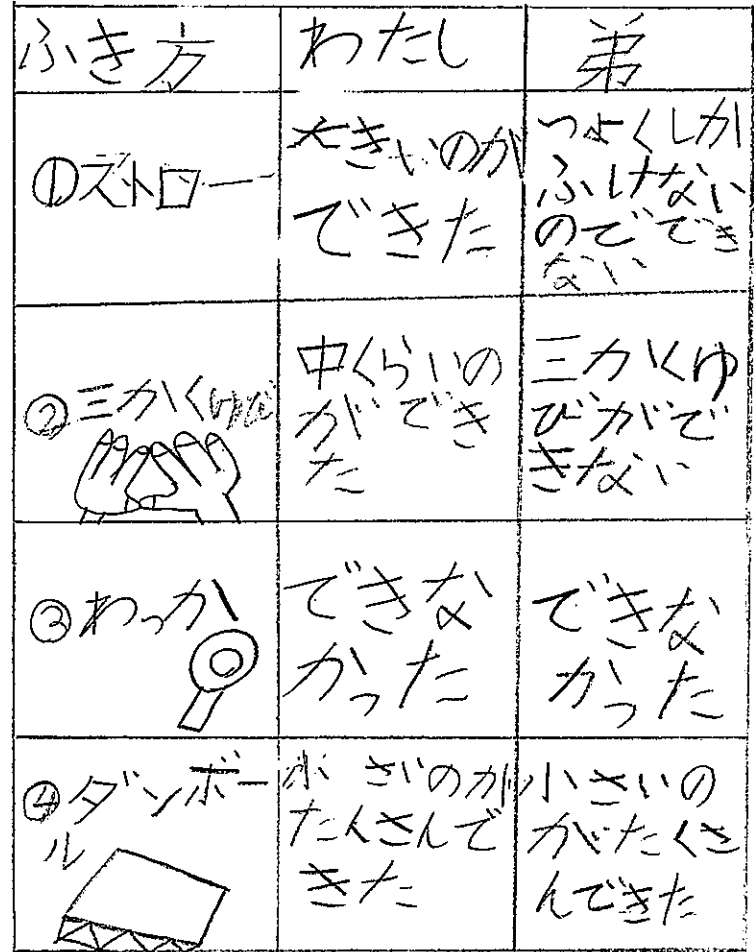 ふき方
わたし
弟
①ストロー
大きいのが
できた
つよくしか
ふけない
のででき
ない
②三かくゆび
中くらいの
ができ
た
三かくゆ
びがで
きない
③わっか
できな
かった
できな
かった
④ダンボー
ル
小さいのが
たくさんで
きた
小さいの
がたくさ
んできた